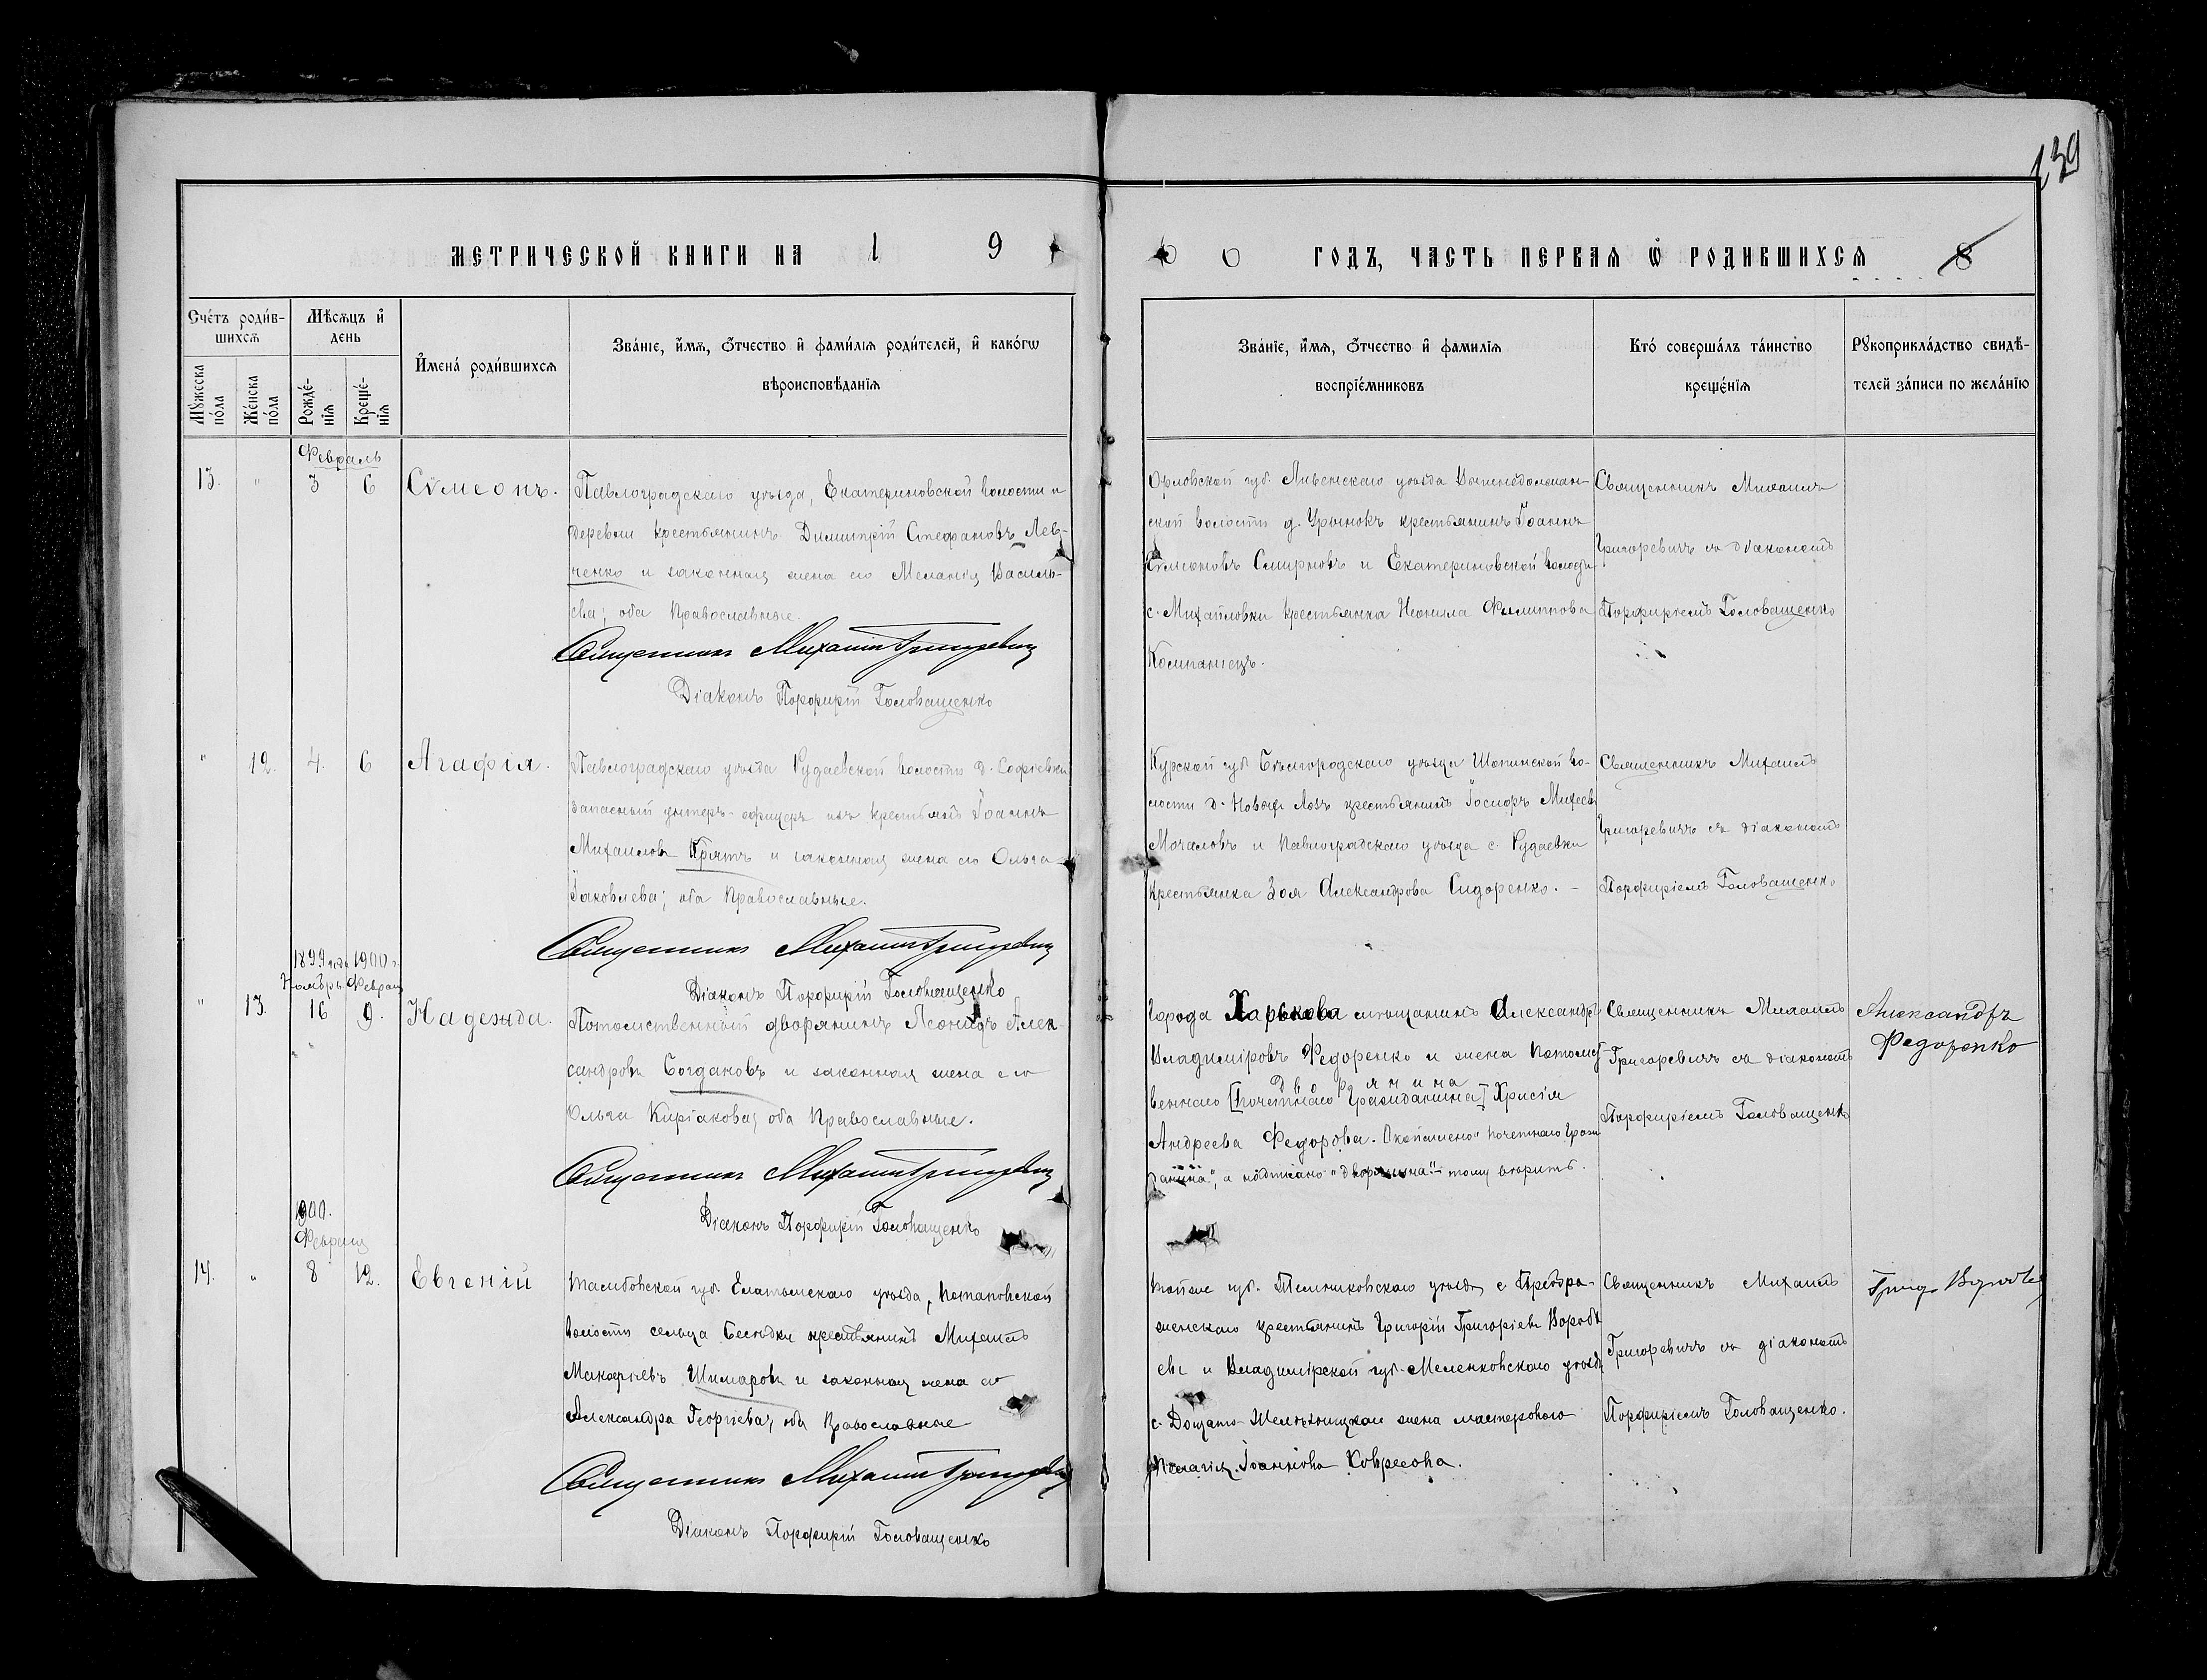 139
МЕТРИЧЕСКОЙ КНИГИ НА 1 9 0 0 ГОДЪ, ЧАСТЬ ПЕРВАЯ Ѡ РОДИВШИХСЯ 8
Сче́тъ роди́в-
шихсѧ
Мѣ́сѧцъ и҆
день
И҆мена̀ роди́вшихсѧ
Зва́нїе, и҆́мѧ, ѻ҆́тчество и҆ фами́лїѧ роди́телей, и҆ како́гѡ
вѣроисповѣ́данїѧ
Мꙋ́жеска
по́ла
Же́нска
по́ла
Рожде́-
нїѧ
Креще́-
нїѧ
Зва́нїе, и҆́мѧ, ѻ҆́тчество и҆ фами́лїѧ
воспрїе́мниковъ
Кто̀ соверша́лъ та́инство
креще́нїѧ
Рꙋкоприкла́дство свидѣ́-
телей за́писи по жела́нїю
Февраль
13. " 3 6 Сѵмеонъ.
Павлоградскаго уѣзда, Екатериновской волости и
деревни крестьянинъ Димитрій Стефановъ Лев-
ченко и законная жена его Меланія Василь-
ева; оба Православные.
Священникъ Михаилъ Григоревичъ
Діаконъ Порфирій Головащенко
Орловской губ. Ливенскаго уѣзда
ской волости д. Урынокъ крестьянинъ Іоаннъ
Сѵмеоновъ Смирновъ и Екатериновской волости
с. Михайловки крестьянка Неонила Филиппова
Компаніецъ.
Священникъ Михаилъ
Григоревичъ съ діакономъ
Порфиріемъ Головащенко
" 12. 4. 6 Агафія.
Павлоградскаго уѣзда Рудаевской волости д. Софіевки
запасный унтеръ-офицеръ изъ крестьянъ Іоаннъ
Михаиловъ и законная жена его Ольга
Іаковлева; оба Православные.
Священникъ Михаилъ Григоревичъ
Діаконъ Порфирій Головащенко
Курской губ. Бѣлгородскаго уѣзда Шопинской во-
лости д. Новыхъ Лозъ крестьянинъ Іосифъ Михеевъ
Мочаловъ и Павлоградскаго уѣзда с. Рудаевки
крестьянка Зоя Александрова Сидоренко. -
Священникъ Михаилъ
Григоревичъ съ діакономъ
Порфиріемъ Головащенко
1899 года 1900 г.
Ноябрь Февраль
" 13. 16 9. Надежда.
Потомственный дворянинъ Леонидъ Алек-
сандровъ Богдановъ и законная жена его
Ольга Киріакова, оба Православные.
Священникъ Михаилъ Григоревичъ
Діаконъ Порфирій Головащенко
Города Харькова мѣщанинъ Александръ
Владиміровъ Федоренко и жена Потомст-
дворянина
веннаго [почетнаго гражданина] Хрисія
Андреева Федорова. Скоблено "почетнаго граж-
данина", а надписано "дворянина" - тому вѣрить.
Священникъ Михаилъ
Григоревичъ съ діакономъ
Порфиріемъ Головащенко
Александръ
Федоренко
1900.
Февраля
14. " 8 12. Евгеній
Тамбовской губ. Елатомскаго уѣзда, Потаповской
волости сельца Бесѣдки крестьянинъ Михаилъ
Макарьевъ Шимаровъ и законная жена его
Александра Георгіева, оба Православные
Священникъ Михаилъ Григоревичъ
Діаконъ Порфирій Головащенко
Тойже губ. Темниковскаго уѣзда с. Преобра-
женскаго крестьянинъ Григорій Григорьевъ Воробь
евъ и Владимірской губ. Меленковскаго уѣзда
с. Дощато-Желѣзницкаго жена мастерового
Пелагія Іоаннова
Священникъ Михаилъ
Григоревичъ съ діакономъ
Порфиріемъ Головащенко.